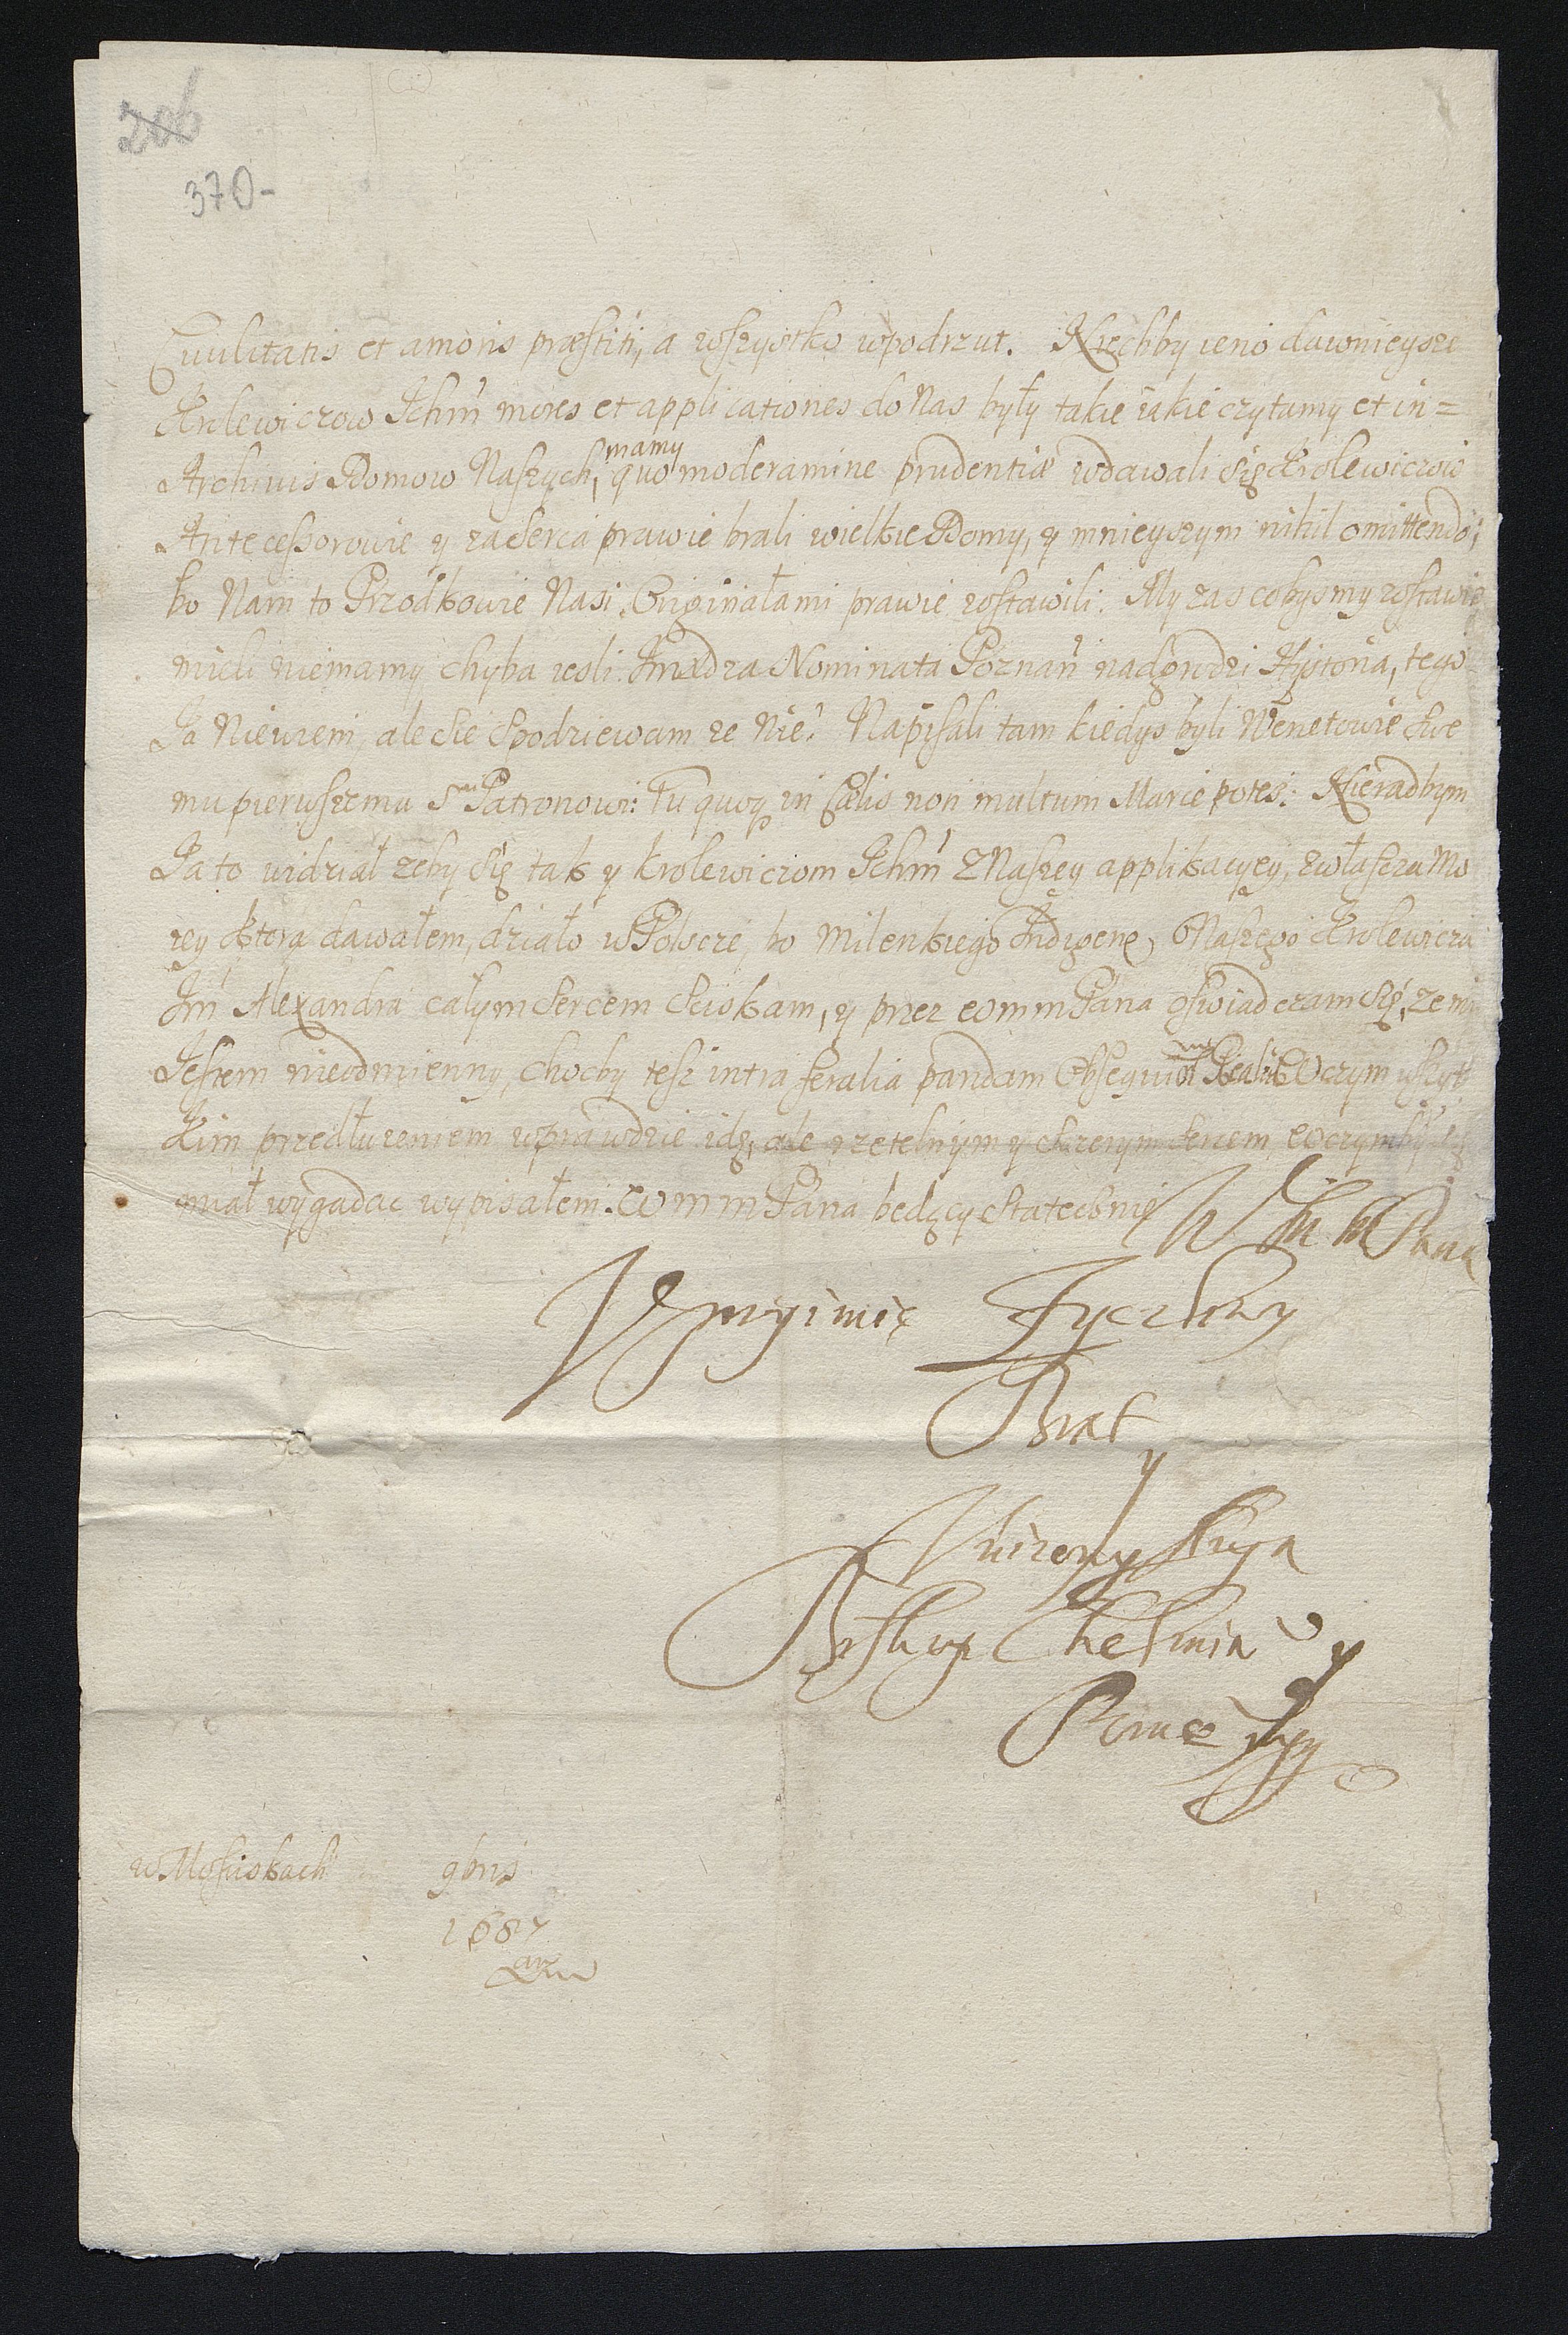 206
370-
Civilitatis et amoris præstiti, a wszystko wpodrzut. Niechby ieno dawnieysze
Krolewiczow Ichm mores et applicationes do Nas były takie iakie czytamy et in=
Archivis Domow Naszych, mamy quo moderamine prudentiæ wdawali się Krolewicow
Antecessorowie y za serca prawie brali wielkie Domy, y mnieyszym nihil omittendo,
bo Nam to Przodkowie Nasi Originałami prawie zostawili. My zas cobysmy zostawic
mieli niemamy chyba iesli Imxdza Nominata Poznań nadgrodzi Hystoria, tego
Ia Niewiem, ale sie spodziewam ze Nie. Napisali tam kiedys byli Wenetowie swe
mu pierwszemu Patronowi: Tu quoq in Cælis non multum Marce potes. Nieradbym
Ia to widział zeby się tak y krolewiczom Ichm z Naszey applikacyey, zwłaszcza Mo
iey ktora dawałem, działo w Polscze, bo Milenkiego Indigenę, Naszego Krolewicza
Im Alexandra całym sercem sciskam, y przez WMM Pana oswiadczam się, ze mu
Iestem nieodmienny, chocby tesz intra feralia pandam Obsequium
kim przedłuzeniem wprawdzie idę, ale rzetelnym y szczerym sercem, co czymby się
miał wygadac wypisałem. WMM Pana będący statecznie
W M M Pana
Uprzyimie Zyczliwy
Brat
y
Unizony sługa
Biskup Chełmin y
Pome
w Mosciskach 9bris
1687